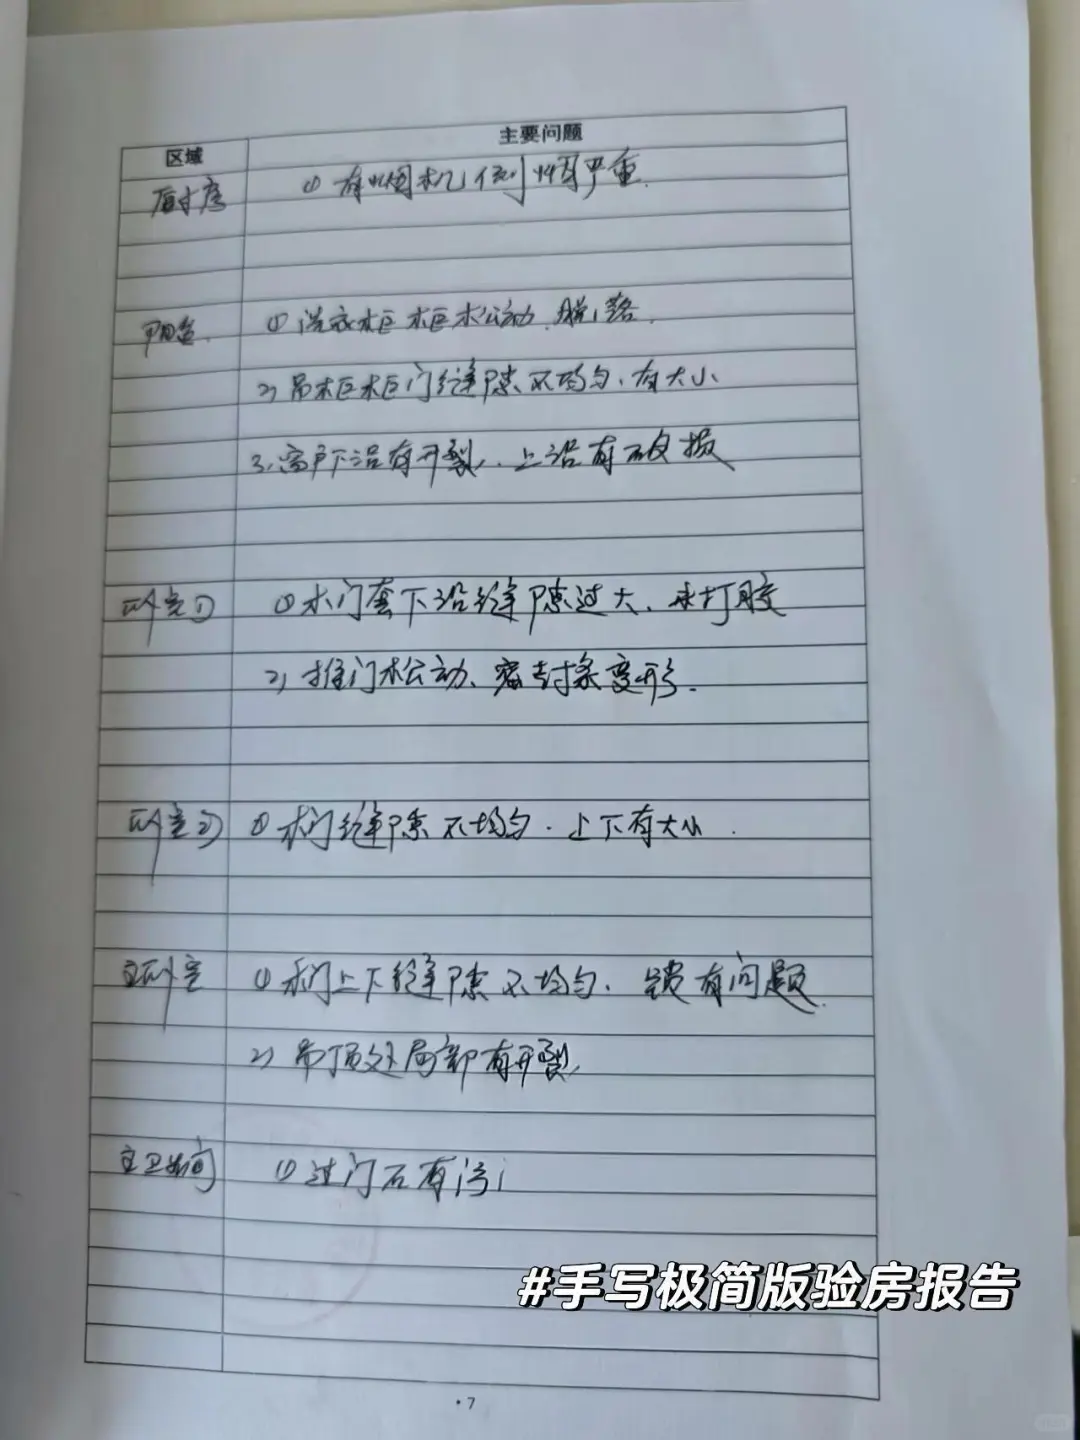 区域 主要问题
厨房 ① 有烟机倒烟严重.
阳台. ① 洗衣柜柜木松动、脱落.
2) 吊柜柜门缝隙不均匀、有大小
3、窗户下沿有开裂、上沿有破损
卧室1) ① 木门套下沿缝隙过大、未打胶
2) 推门松动、密封条变形.
卧室2) ① 木门缝隙不均匀. 上下有大小.
主卧室 ① 木门上下缝隙不均匀. 锁有问题.
2) 吊顶处局部有开裂.
主卫生间 ① 过门石有污
#手写极简版验房报告
· 7